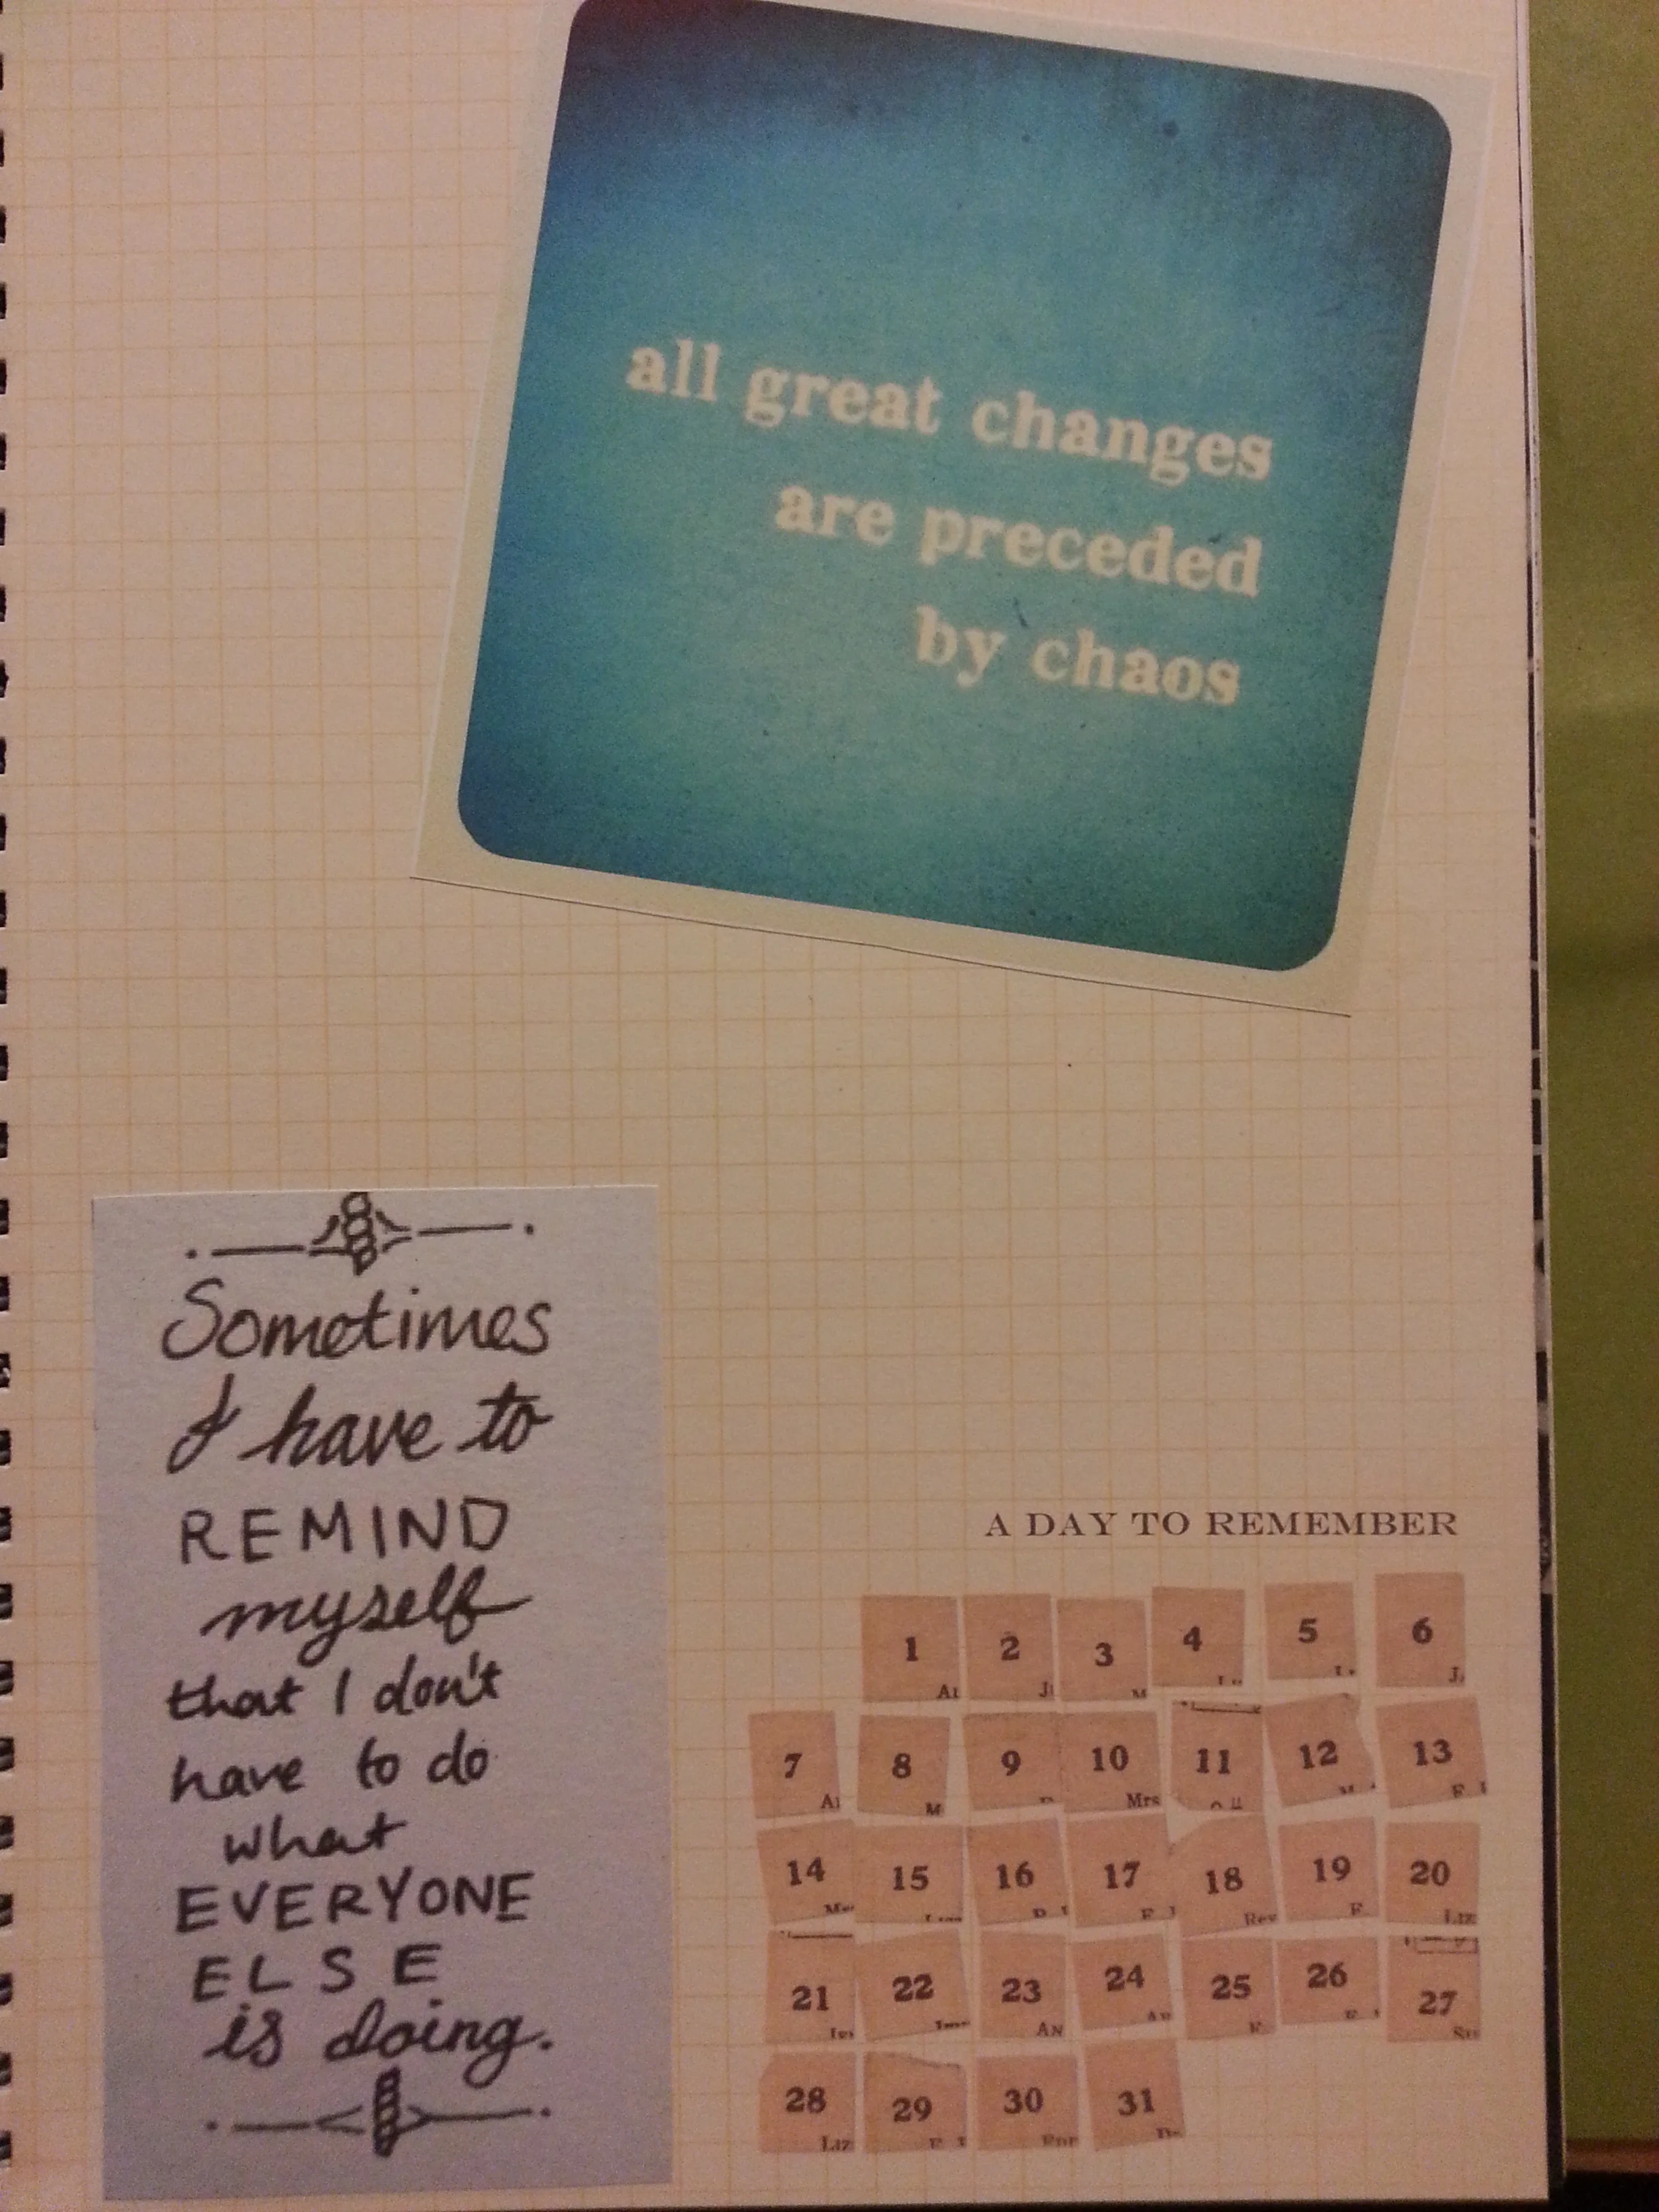 all great changes
are preceded
by chaos
Sometimes
I have to
REMIND
myself
that I don't
have to do
what
EVERYONE
ELSE
is doing.
A DAY TO REMEMBER
1 2 3 4 5 6
7 8 9 10 Mrs 11 12 13
14 15 16 17 18 Rev 19 20
21 22 23 24 25 26 27
28 29 30 31